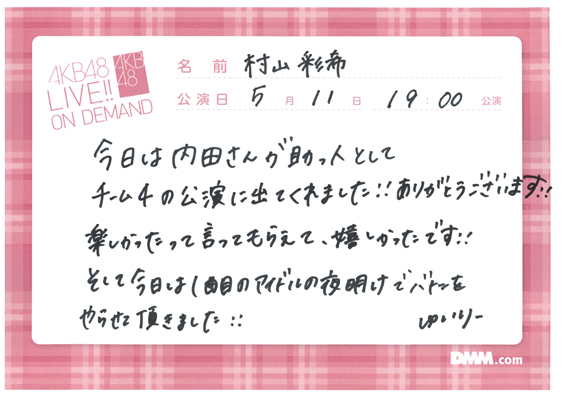 AKB48
LIVE!!
ON DEMAND
AKB
48
名 前 村山彩希
公演日 5 月 11 日 19:00 公演
今日は内田さんが助っ人として
チーム4の公演に出てくれました!!ありがとうございます!!
楽しかったって言ってもらえて、嬉しかったです!!
そして今日は1曲目のアイドルの夜明けでバトンを
やらせて頂きました!!
ゆいりー
DMM.com